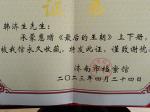 证书
韩济生先生：
承蒙惠赠《最后的王朝》上下册，
被我馆永久收藏。特发此证，谨致谢忱
济南市档案馆
二〇二三年四月二十四日